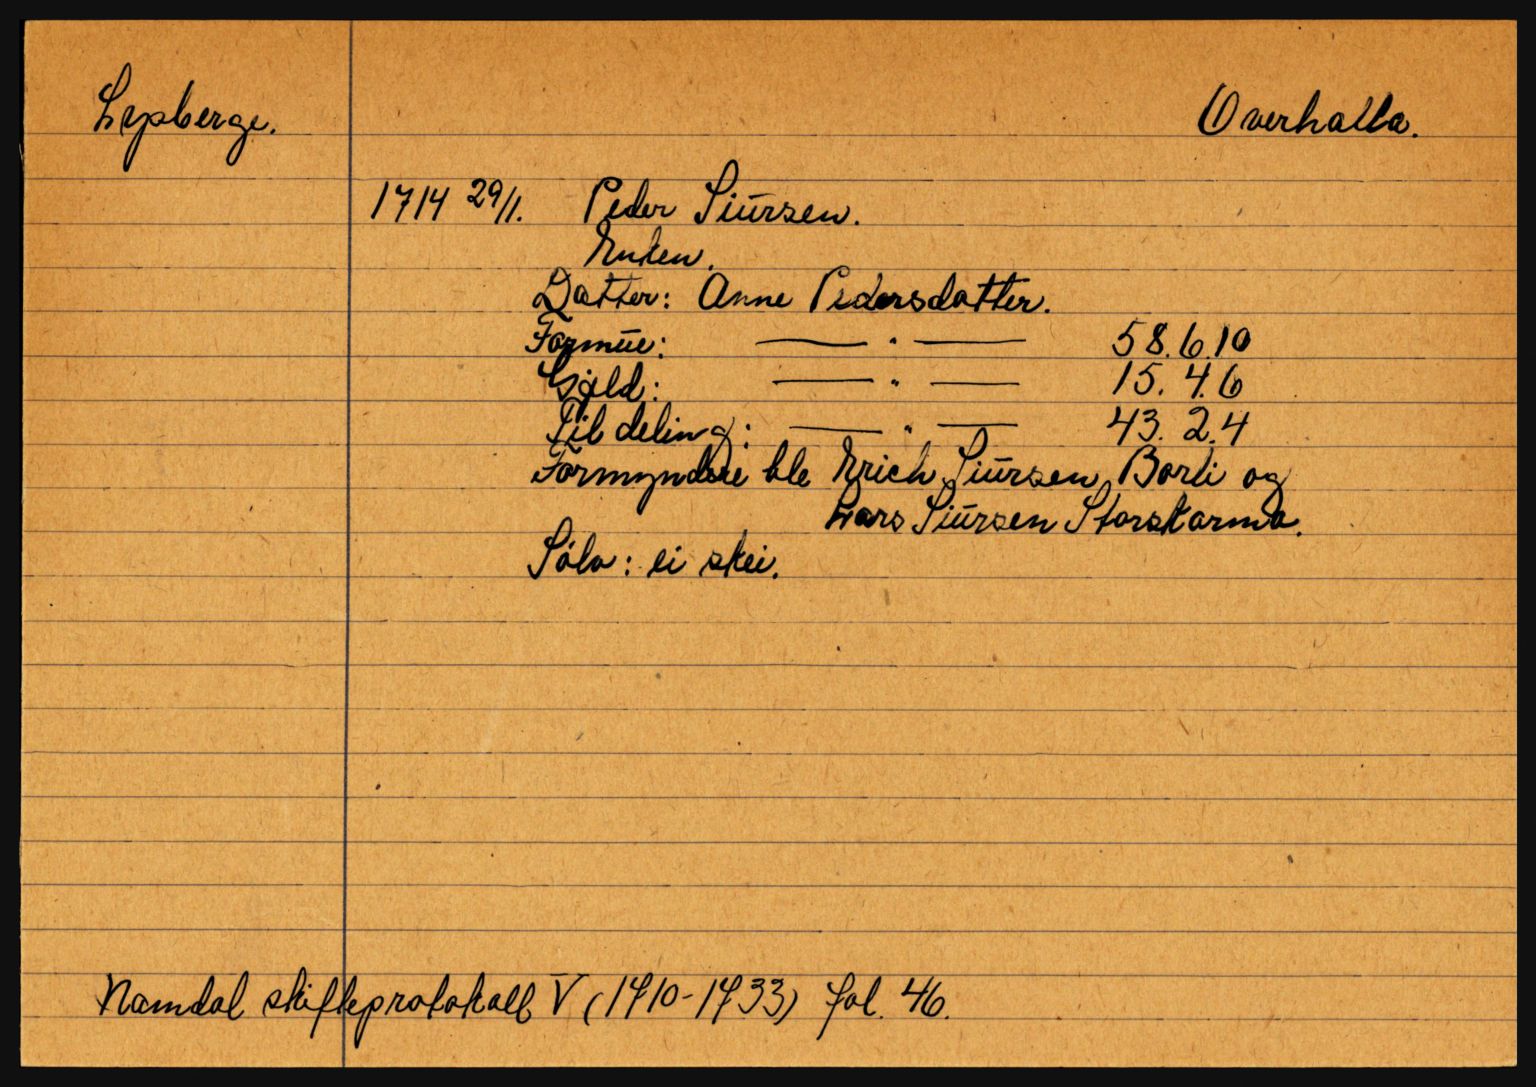 Lysberge.
Overhalla.
1714 29/1. Peder Siūrsen.
Enken.
Datter: Anne Pedersdatter.
Formūe: — " — 58.6.10
Gjeld: — " — 15.4.6
Til deling: — " — 43.2.4
Formyndere ble Erich Siūrsen Borli og
Lars Siūrsen Storskarmo.
Sölv: ei skei.
Namdal skifteprotokoll V (1710-1733) fol. 46.